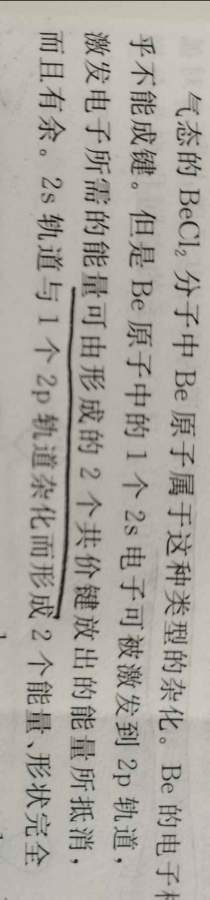 气态的 BeCl₂ 分子中 Be 原子属于这种类型的杂化。Be 的电子
乎不能成键。但是 Be 原子中的 1 个 2s 电子可被激发到 2p 轨道，
激发电子所需的能量可由形成的 2 个共价键放出的能量所抵消，
而且有余。2s 轨道与 1 个 2p 轨道杂化而形成 2 个能量、形状完全